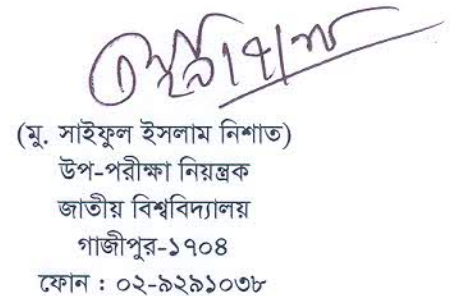 (মু. সাইফুল ইসলাম নিশাত)
উপ-পরীক্ষা নিয়ন্ত্রক
জাতীয় বিশ্ববিদ্যালয়
গাজীপুর-১৭০৪
ফোন : ০২-৯২৯১০৩৮